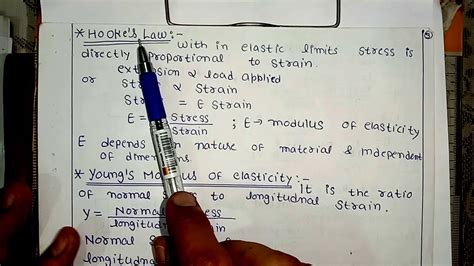 * HOOKe's Law:-
With in elastic limits stress is
directly proportional to strain.
extension α load applied
or St α Strain
Str = E Strain
E = Stress / Strain ; E → modulus of elasticity
E depends on nature of material & independent
of dimensions.
* Young's Modulus of elasticity:-
It is the ratio
of normal to longitudnal strain.
Y = Normal ess / longitud rain
Normal
longitudnal